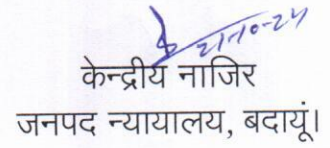 21-10-24
केन्द्रीय नाजिर
जनपद न्यायालय, बदायूं।